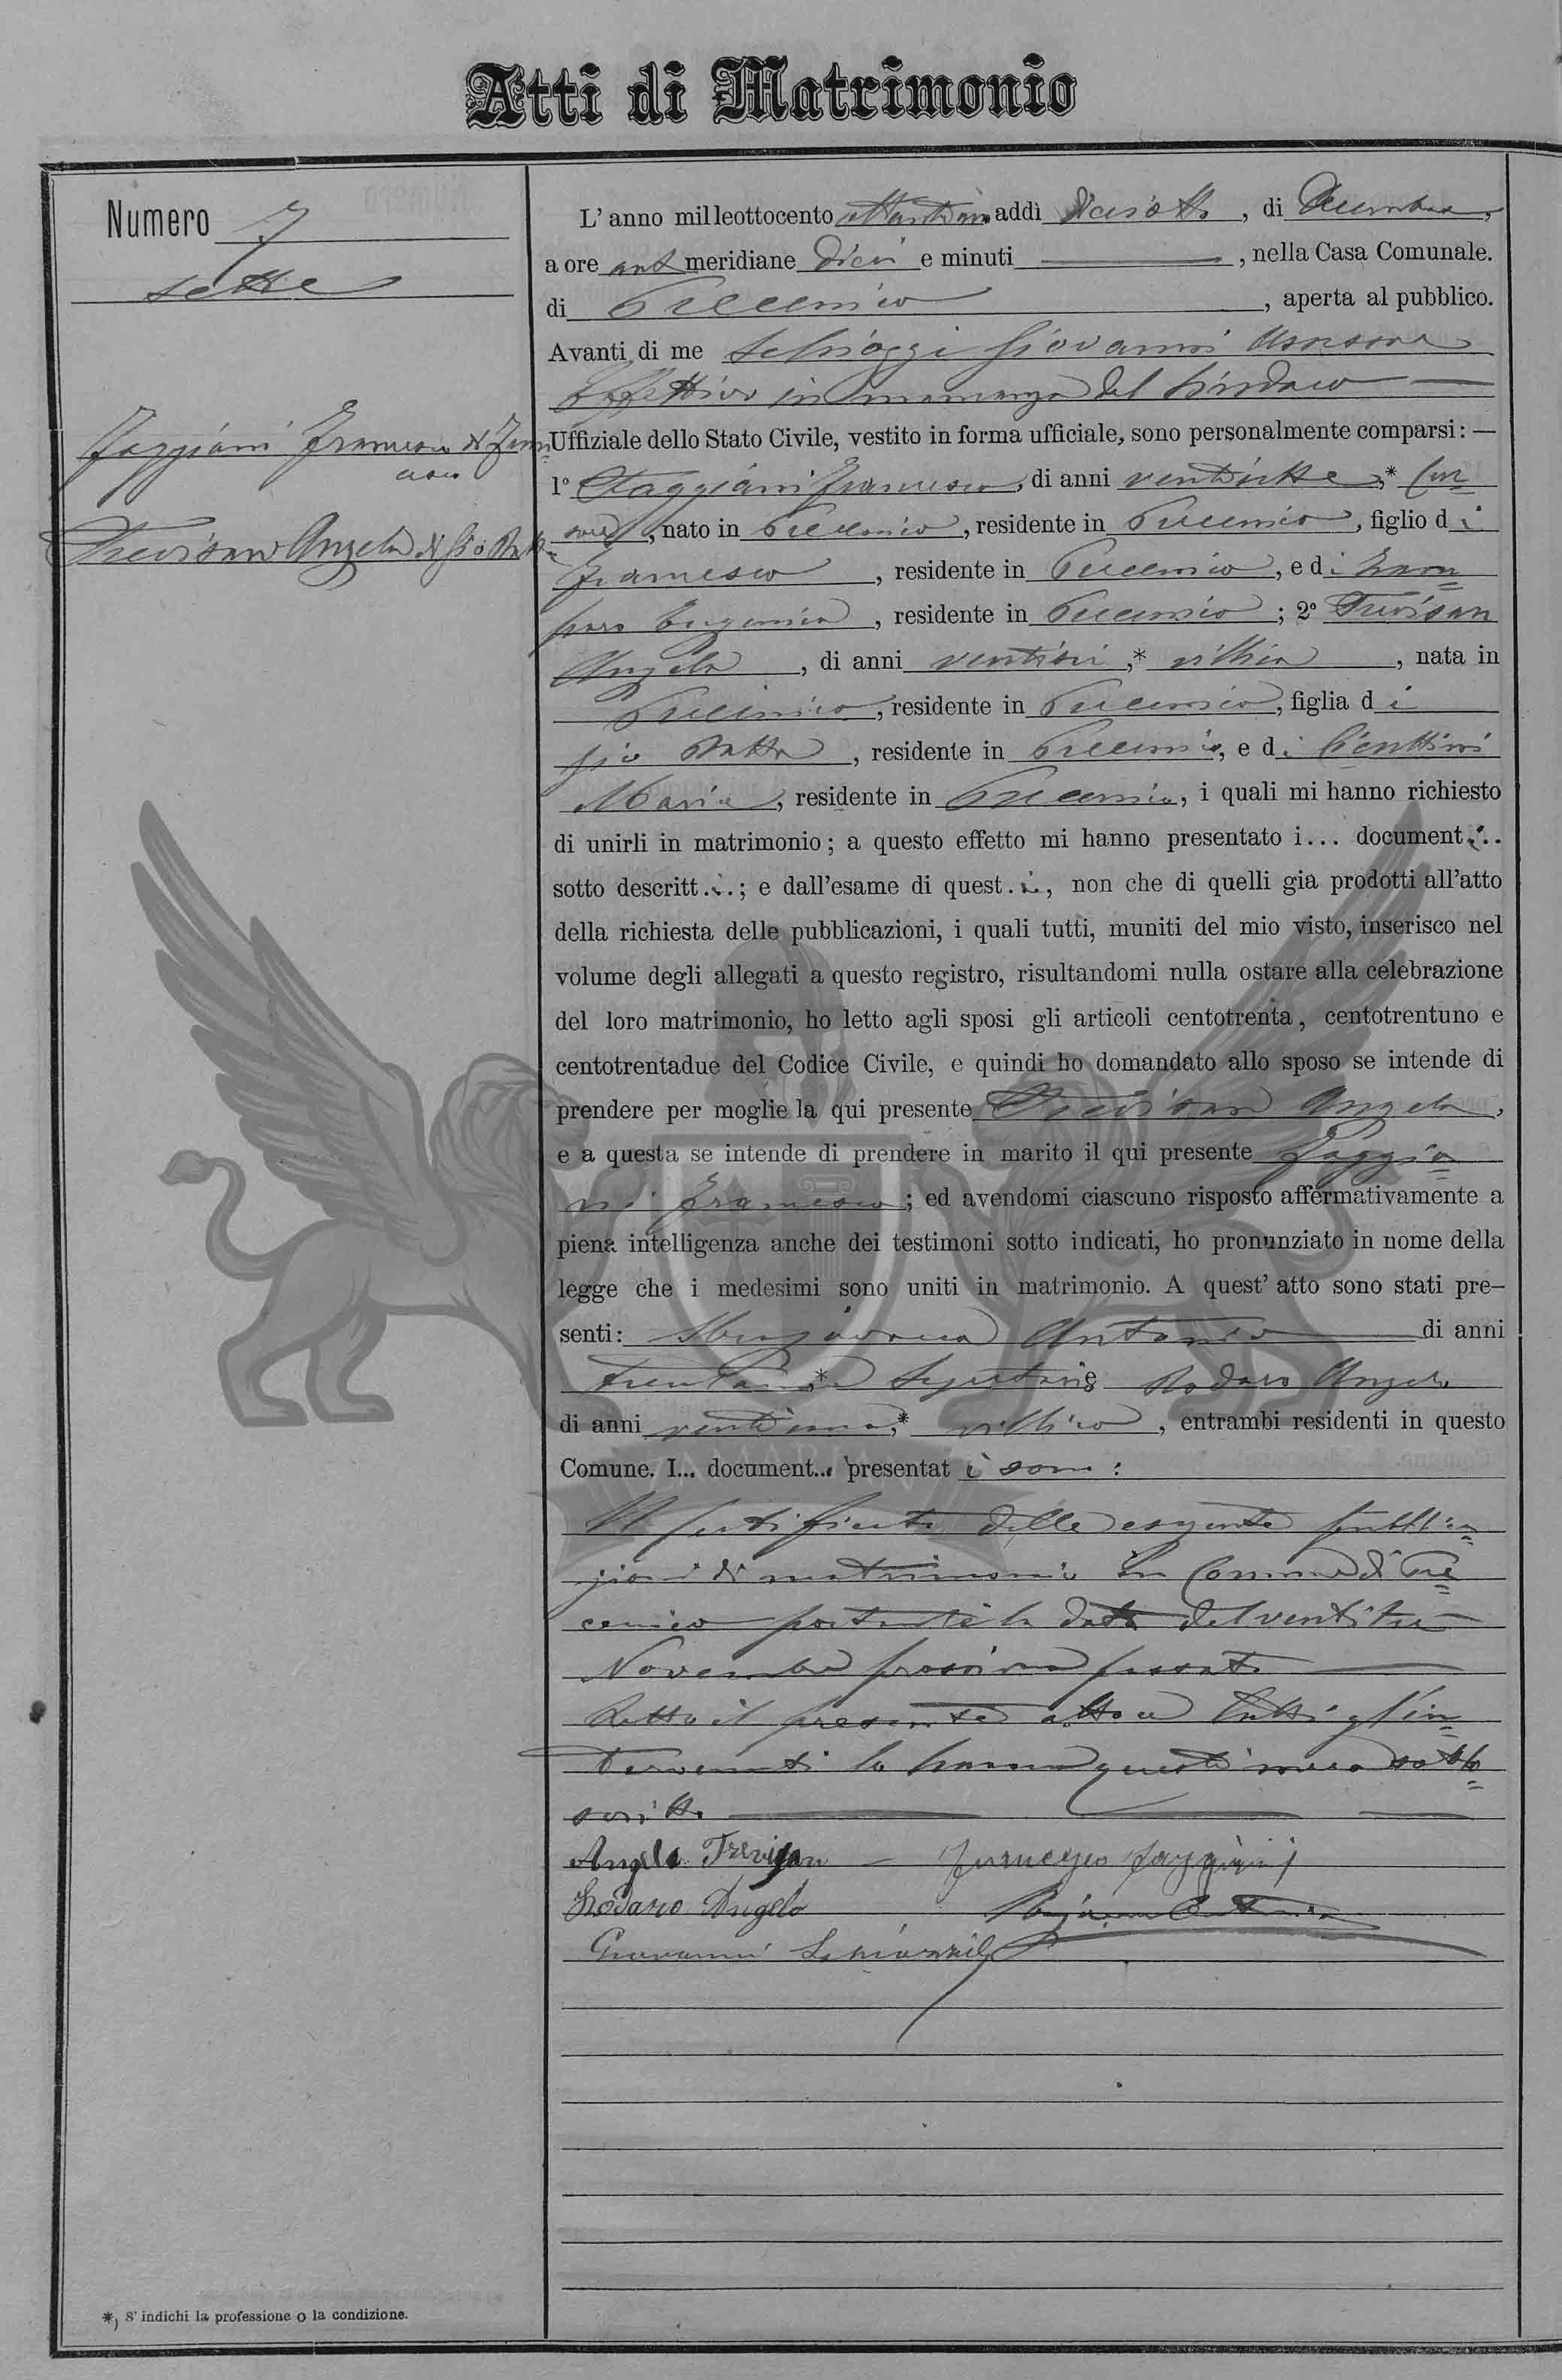 Atti di Matrimonio
Numero 7
sette
Faggiani Francesco di Fran=
cesco
Trevisan Angela di Gio Batta
L' anno milleottocento addì diciotto, di Decembre,
a ore ant meridiane dieci e minuti ———, nella Casa Comunale.
di Precenico, aperta al pubblico.
Avanti di me Schiozzi Giovanni Assessore
Effettivo in mancanza del Sindaco —
Uffiziale dello Stato Civile, vestito in forma ufficiale, sono personalmente comparsi: —
1º Faggiani Francesco, di anni *
, nato in Precenico, residente in Precenico, figlio di
Francesco, residente in Precenico, e di
Eugenia, residente in Precenico; 2º Trevisan
Angela, di anni ventisei,* villica, nata in
Precenico, residente in Precenico, figlia di
Gio Batta, residente in Precenico, e di
Maria, residente in Precenico, i quali mi hanno richiesto
di unirli in matrimonio; a questo effetto mi hanno presentato i... documenti..
sotto descritt.i.; e dall'esame di quest.i., non che di quelli già prodotti all'atto
della richiesta delle pubblicazioni, i quali tutti, muniti del mio visto, inserisco nel
volume degli allegati a questo registro, risultandomi nulla ostare alla celebrazione
del loro matrimonio, ho letto agli sposi gli articoli centotrenta, centotrentuno e
centotrentadue del Codice Civile, e quindi ho domandato allo sposo se intende di
prendere per moglie la qui presente Trevisan Angela,
e a questa se intende di prendere in marito il qui presente Faggia=
ni Francesco; ed avendomi ciascuno risposto affermativamente a
piena intelligenza anche dei testimoni sotto indicati, ho pronunziato in nome della
legge che i medesimi sono uniti in matrimonio. A quest' atto sono stati pre-
senti: Sbrojavacca Antonio di anni
* Segretario e Rodaro Angelo
di anni,* villico, entrambi residenti in questo
Comune. I... document..i presentati sono:
Il certificato delle eseguite pubblica=
zioni di matrimonio in Comune di Pre=
cenico portante la data del ventitre —
Novembre prossimo passato —
Letto il presente atto a tutti gl'in=
tervenuti lo hanno questi meco sotto=
scritto
Angela Trevisan — Francesco Faggiani
Rodaro Angelo Antonio
Giovanni Schiozzi
*) S' indichi la professione o la condizione.